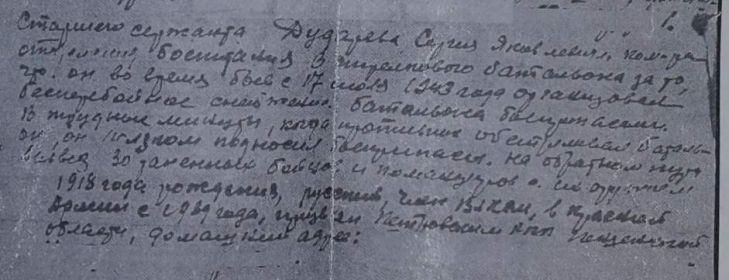 1.
Старшего сержанта Дударева Сергия Яковлевича, ком-ра
отделения боепитания 3 стрелкового батальона за то,
что он во время боев с 17 июля 1943 года организовал
бесперебойное снабжение батальона боеприпасами.
В трудные минуты, когда противник обстреливал батальон
он, он ползком подносил боеприпасы. На обратном пути
вывез 30 раненных бойцов и командиров с их оружием
1918 года рождения, русский, член ВЛКСМ, в Красной
Армии с 1939 года, призван Петровским РВК
области, домашний адрес: